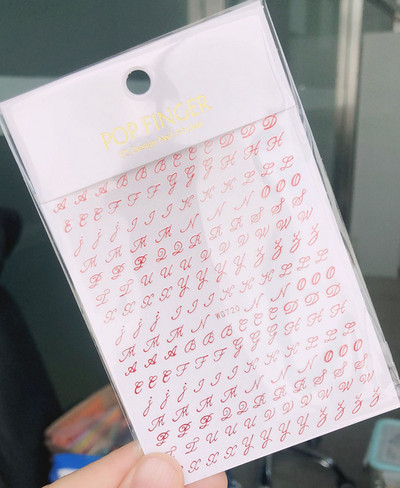 POP FINGER
A A A B B B C C C D D D
E E E F F F G G G H H H
J J J I I I K K K L L L
M M M N N N O O O
P P P Q Q Q R R R S S S
T T U U U V V V W W W
X X X Y Y Y Y Z Z Z
J J J I I I K K K L L L
M M M N WG720 N N O O O
A A A B B B C C C D D D
E E E F F F G G G H H H
J J J I I I K K K L L L
M M M N N N O O O
P P P Q Q Q R R R S S S
T T U U U V V V W W W
X X X Y Y Y Y Z Z Z